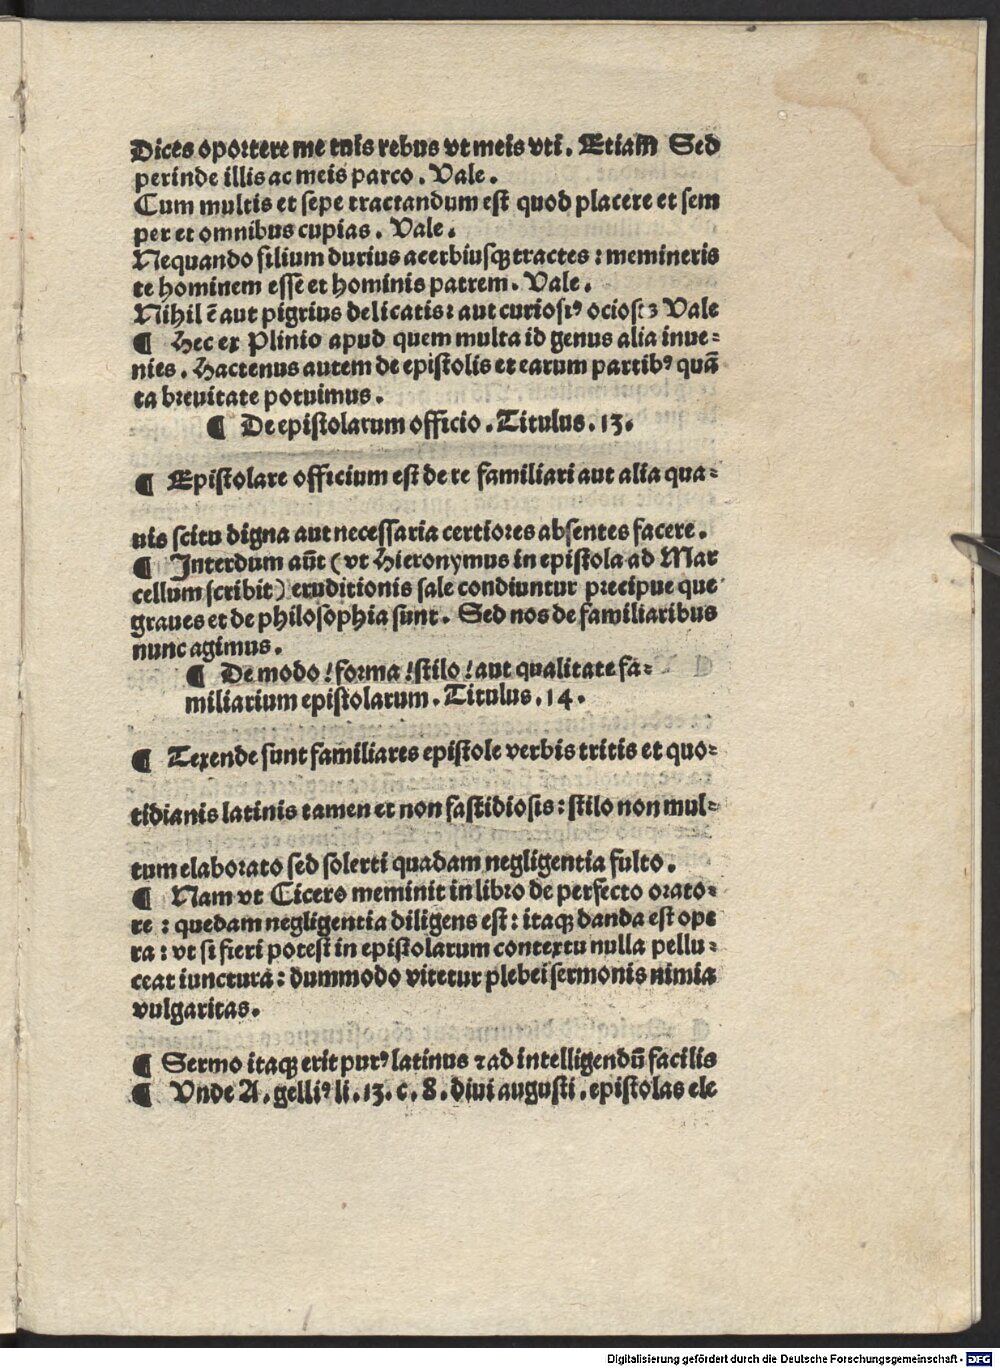 Dices oportere me tuis rebus vt meis vti. Etiam Sed
perinde illis ac meis parco. Vale.
Cum multis et sepe tractandum est quod placere et sem
per et omnibus cupias. Vale.
Nequando filium durius acerbiusqꝫ tractes : memineris
te hominem esse et hominis patrem. Vale.
Nihil ē aut pigrius delicatis: aut curiosiꝰ ociosꝭ Vale
¶ Hec ex Plinio apud quem multa id genus alia inue⸗
nies. Hactenus autem de epistolis et earum partibꝰ quā
ta breuitate potuimus.
¶ De epistolarum officio. Titulus. 13.
¶ Epistolare officium est de re familiari aut alia qua⸗
uis scitu digna aut necessaria certiores absentes facere.
¶ Interdum aūt (vt Hieronymus in epistola ad Mar
cellum scribit) eruditionis sale condiuntur precipue que
graues et de philosophia sunt. Sed nos de familiaribus
nunc agimus.
¶ De modo / forma / stilo / aut qualitate fa⸗
miliarium epistolarum. Titulus. 14.
¶ Texende sunt familiares epistole verbis tritis et quo⸗
tidianis latinis tamen et non fastidiosis: stilo non mul⸗
tum elaborato sed solerti quadam negligentia fulto.
¶ Nam vt Cicero meminit in libro de perfecto orato⸗
re : quedam negligentia diligens est: itaqꝫ danda est ope
ra : vt si fieri potest in epistolarum contextu nulla pellu⸗
ceat iunctura: dummodo vitetur plebei sermonis nimia
vulgaritas.
¶ Sermo itaqꝫ erit purꝰ latinus ⁊ ad intelligendū facilis
¶ Vnde A. gelliꝰ li. 13. c. 8. diui augusti. epistolas ele
Digitalisierung gefördert durch die Deutsche Forschungsgemeinschaft - DFG